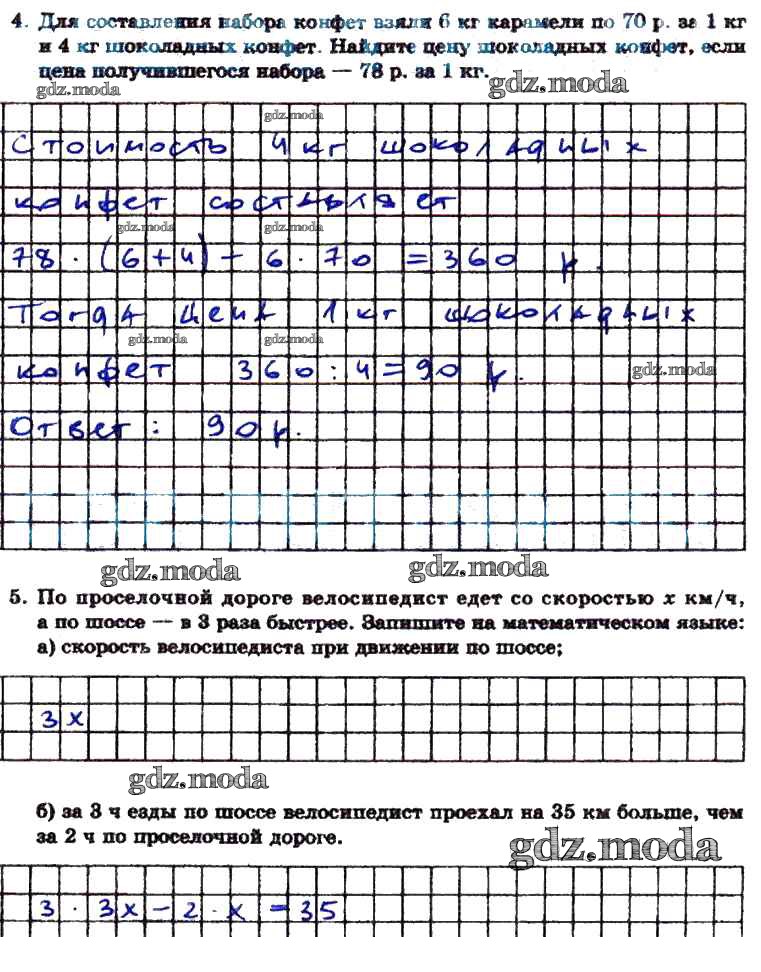 4. Для составления набора конфет взяли 6 кг карамели по 70 р. за 1 кг
и 4 кг шоколадных конфет. Найдите цену шоколадных конфет, если
цена получившегося набора — 78 р. за 1 кг.
gdz.moda gdz.moda
gdz.moda
Стоимость 4 кг шоколадных
конфет составляет
gdz.moda gdz.moda
78 · (6+4) - 6 · 70 = 360 р.
Тогда цена 1 кг шоколадных
gdz.moda gdz.moda
конфет 360 : 4 = 90 р. gdz.moda
Ответ: 90 р.
gdz.moda gdz.moda
5. По проселочной дороге велосипедист едет со скоростью x км/ч,
а по шоссе — в 3 раза быстрее. Запишите на математическом языке:
а) скорость велосипедиста при движении по шоссе;
3x
gdz.moda
б) за 3 ч езды по шоссе велосипедист проехал на 35 км больше, чем
за 2 ч по проселочной дороге.
gdz.moda
3 · 3x - 2 · x = 35